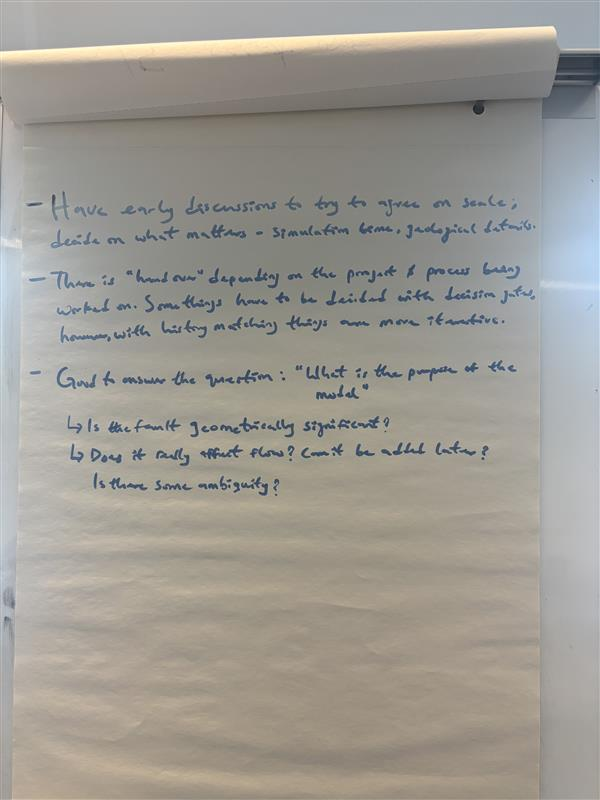 - Have early discussions to try to agree on scale;
decide on what matters - simulation time, geological details.
- There is "hand over" depending on the project & process being
worked on. Some things have to be decided with decision gates,
however, with history matching things are more iterative.
- Good to answer the question: "What is the purpose of the
model"
↳ Is the fault geometrically significant?
↳ Does it really affect flow? Can it be added later?
Is there some ambiguity?